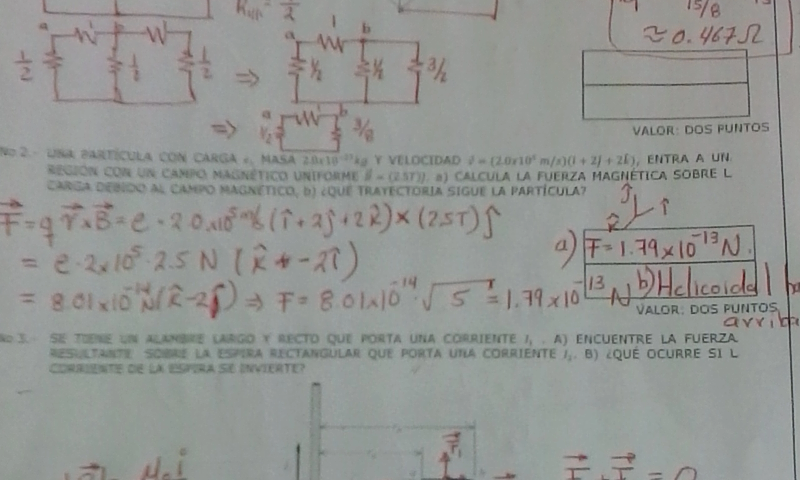 R
2
15/8
≈ 0.467 Ω
a b
1/2 1/2 1/2
⇒
1
a b
1/2 1/2 3/2
⇒
a b
1/2 3/8
VALOR: DOS PUNTOS
No 2.- UNA PARTÍCULA CON CARGA e, MASA Y VELOCIDAD v⃗ = (2.0x10⁵ m/s)(î + 2ĵ + 2k̂), ENTRA A UN
REGIÓN CON UN CAMPO MAGNÉTICO UNIFORME B⃗ = (2.5T)ĵ. a) CALCULA LA FUERZA MAGNÉTICA SOBRE L
CARGA DEBIDO AL CAMPO MAGNÉTICO, b) ¿QUÉ TRAYECTORIA SIGUE LA PARTÍCULA?
F⃗ = q v⃗ x B⃗ = e · 2.0x10⁵ m/s (î + 2ĵ + 2k̂) × (2.5T) ĵ
= e · 2x10⁵ · 2.5 N (k̂ + -2î)
= 8.01x10⁻¹⁴ N (k̂ - 2î) ⇒ F = 8.01x10⁻¹⁴ · √5 = 1.79 x10⁻¹³ N
ĵ
k̂ î
a) F = 1.79 x10⁻¹³ N.
b) Helicoidal ha
VALOR: DOS PUNTOS
arriba
No 3.- SE TIENE UN ALAMBRE LARGO Y RECTO QUE PORTA UNA CORRIENTE I₁ . A) ENCUENTRE LA FUERZA
RESULTANTE SOBRE LA ESPIRA RECTANGULAR QUE PORTA UNA CORRIENTE I₂. B) ¿QUÉ OCURRE SI L
CORRIENTE DE LA ESPIRA SE INVIERTE?
F⃗₁